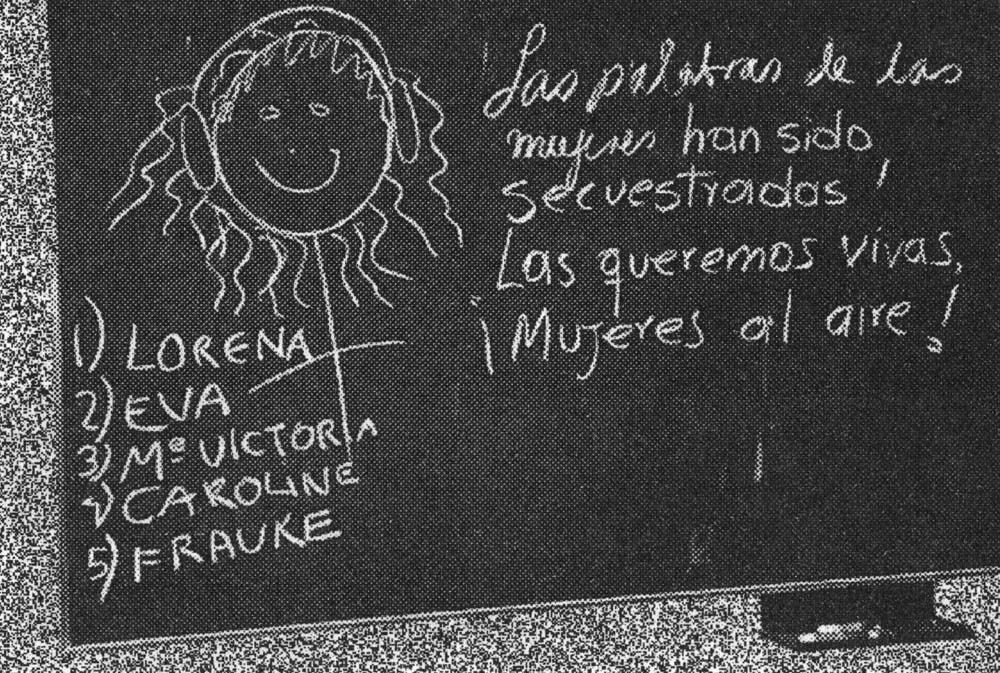 Las palabras de las
mujeres han sido
secuestradas!
Las queremos vivas,
¡Mujeres al aire!
1) LORENA
2) EVA
3) Mª VICTORIA
4) CAROLINE
5) FRAUKE